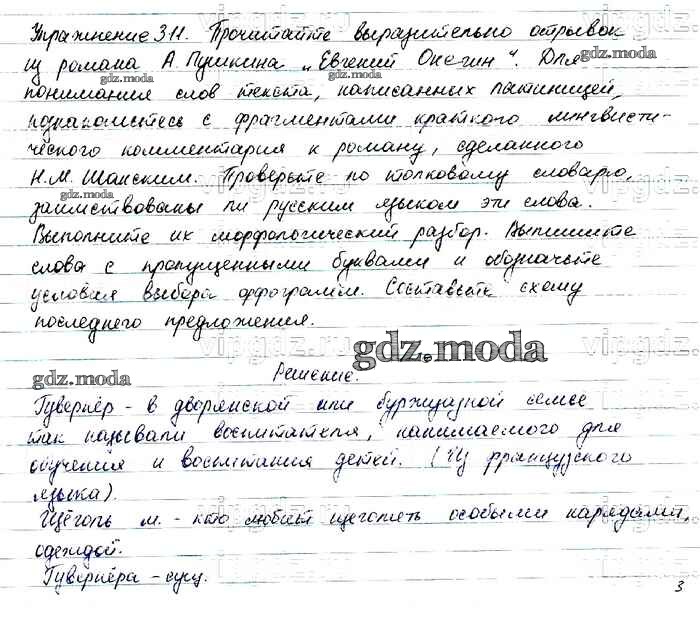 Упражнение 311. Прочитайте выразительно отрывок
из романа А. Пушкина „Евгений Онегин“. Для
gdz.moda
gdz.moda
понимания слов текста, написанных латиницей,
gdz.moda
познакомьтесь с фрагментами краткого лингвисти-
ческого комментария к роману, сделанного
Н.М. Шанским. Проверьте по толковому словарю,
gdz.moda
заимствованы ли русским языком эти слова.
Выполните их морфологический разбор. Выпишите
слова с пропущенными буквами и обозначьте
условия выбора орфограмм. Составьте схему
последнего предложения.
gdz.moda
Решение.
gdz.moda
Гувернёр - в дворянской или буржуазной семье
так называли воспитателя, нанимаемого для
обучения и воспитания детей. (Из французского
языка).
Щёголь м. - кто любит щеголять особыми нарядами,
одеждой.
Гувернёра - сущ.
3